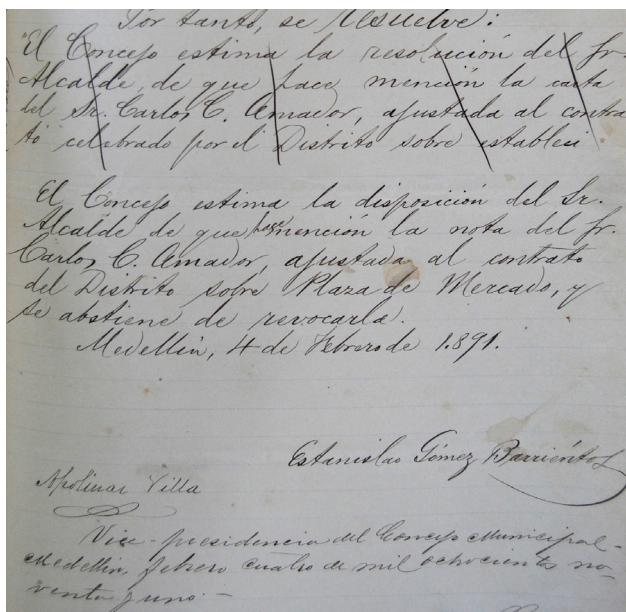 Por tanto, se resuelve:
"El Concejo estima la resolución del Sr.
Alcalde, de que hace mención la carta
del Sr. Carlos C. Amador, ajustada al contra
to celebrado por el Distrito sobre establesi
El Concejo estima la disposición del Sr.
Alcalde de que hace mención la nota del Sr.
Carlos C. Amador, ajustada al contrato
del Distrito sobre Plaza de Mercado, y
se abstiene de revocarla.
Medellín, 4 de Febrero de 1.891.
Estanislao Gómez Barriéntos
Apolinar Villa
Vice-presidencia del Concejo Municipal-
Medellín, febrero cuatro de mil ochocientos no-
venta y uno.-